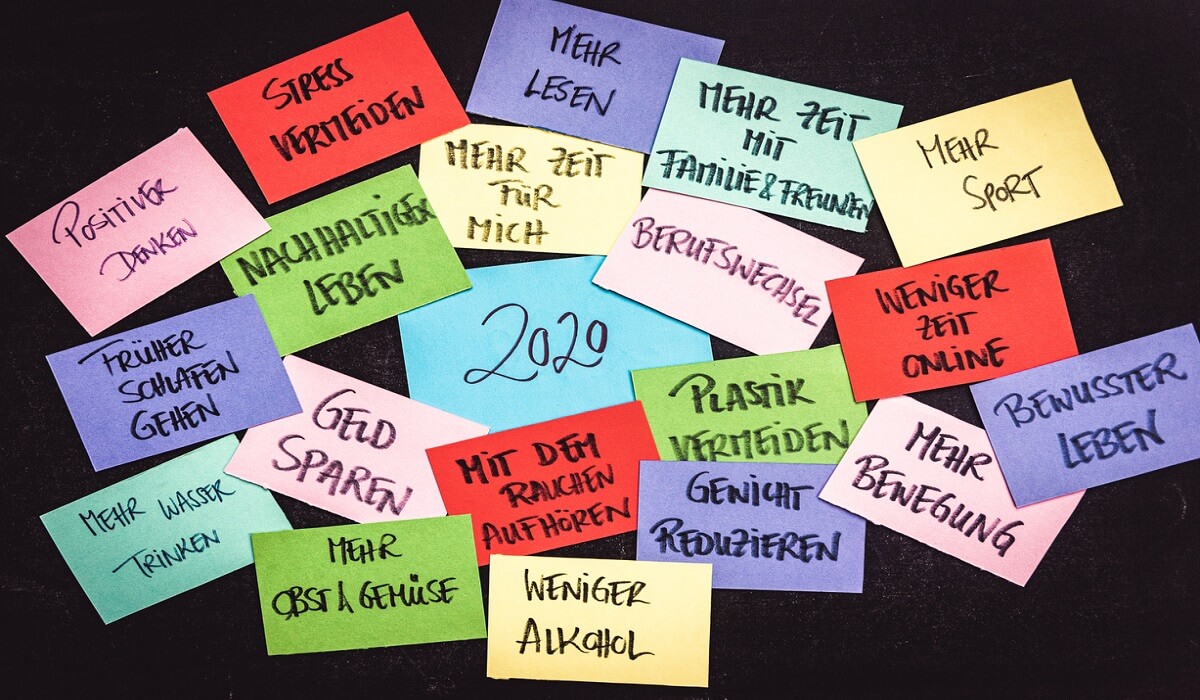 STRESS
VERMEIDEN
MEHR
LESEN
MEHR ZEIT
MIT
FAMILIE & FREUNDEN
MEHR
SPORT
POSITIVER
DENKEN
NACHHALTIGER
LEBEN
MEHR ZEIT
FÜR
MICH
BERUFSWECHSEL
WENIGER
ZEIT
ONLINE
FRÜHER
SCHLAFEN
GEHEN
2020
BEWUSSTER
LEBEN
GELD
SPAREN
MIT DEM
RAUCHEN
AUFHÖREN
PLASTIK
VERMEIDEN
MEHR
BEWEGUNG
MEHR WASSER
TRINKEN
MEHR
OBST & GEMÜSE
WENIGER
ALKOHOL
GEWICHT
REDUZIEREN